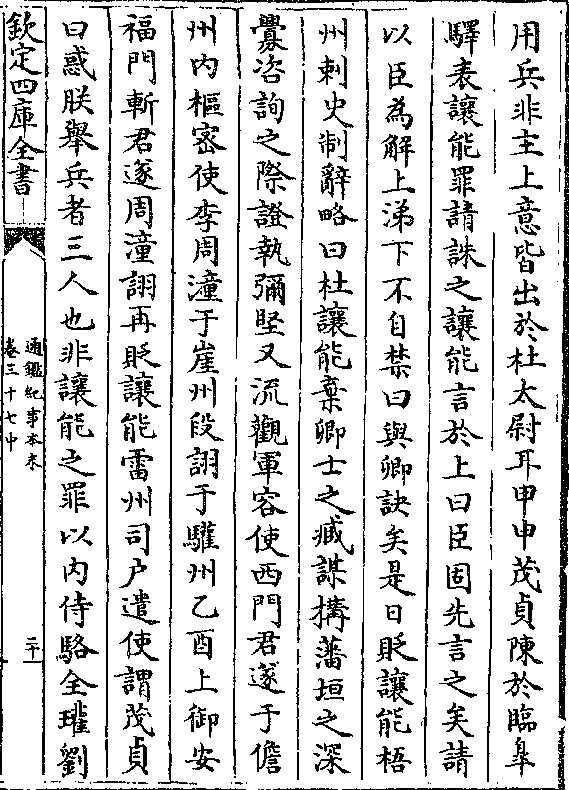 用兵非主上意皆出於杜太尉耳甲申茂貞陳於臨臯
驛表讓能罪請誅之讓能言於上曰臣固先言之矣請
以臣為解上涕下不自禁曰與卿訣矣是日貶讓能梧
州刺史制辭略曰杜讓能棄卿士之臧謀搆藩垣之深
釁咨詢之際證執彌堅又流觀軍容使西門君遂于儋
州内樞宻使李周潼于崖州段詡于驩州乙酉上御安
福門斬君遂周潼詡再貶讓能雷州司户遣使謂茂貞
曰惑朕舉兵者三人也非讓能之罪以内侍駱全瓘劉
欽定四庫全書
通鑑紀事本末
卷三十七中
二十